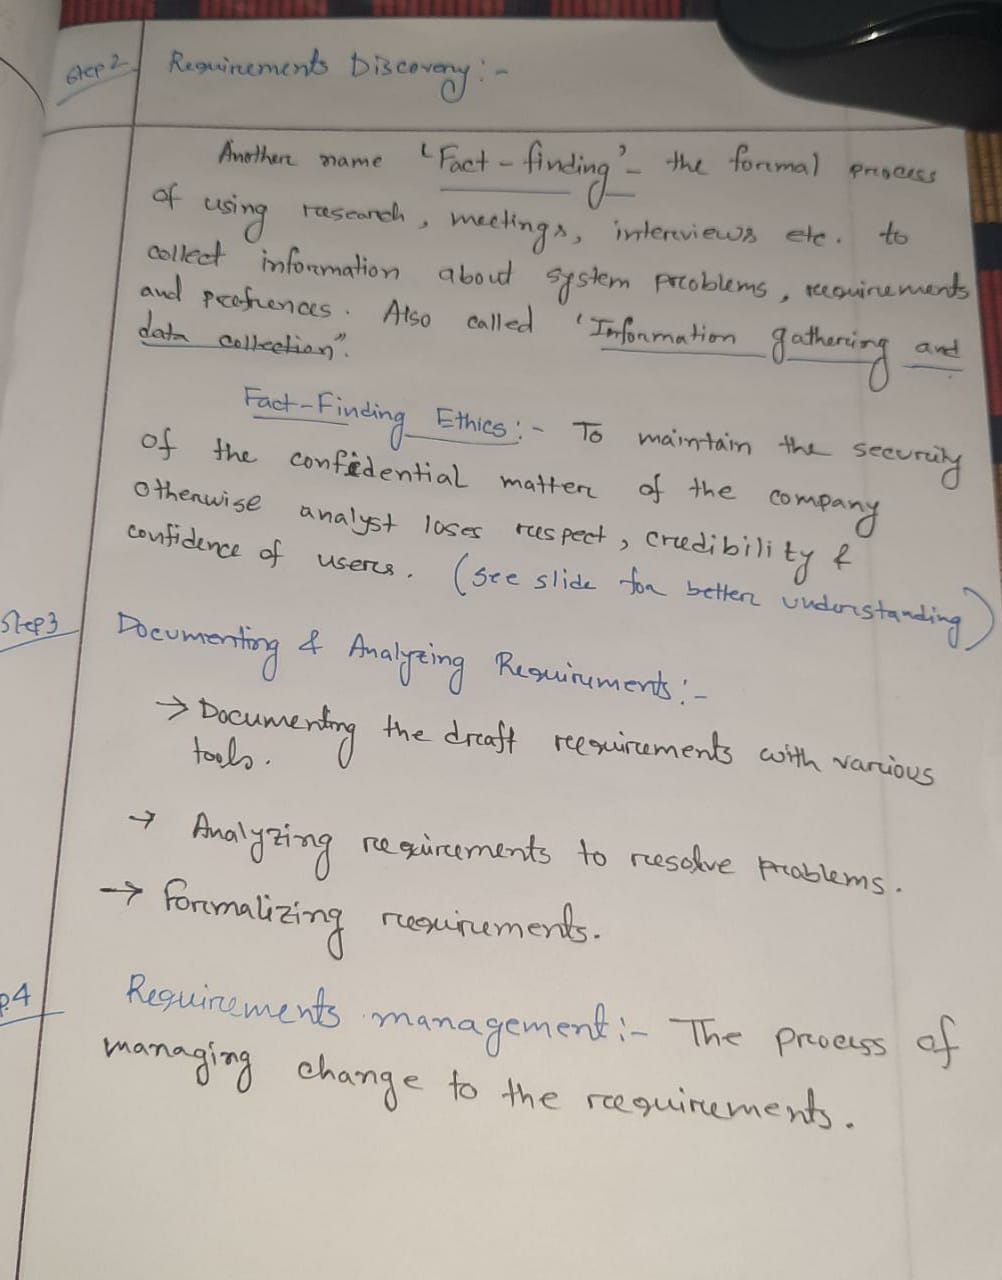 Step 2 Requirements Discovery :-
Another name 'Fact-finding' - the formal process
of using research, meetings, interviews etc. to
collect information about system problems, requirements
and prefrences. Also called 'Information gathering and
data collection".
Fact-Finding Ethics :- To maintain the security
of the confidential matter of the company
otherwise analyst loses respect, credibility &
confidence of users. (See slide for better understanding)
Step3 Documenting & Analyzing Requirements :-
→ Documenting the draft requirements with various
tools.
→ Analyzing requirements to resolve problems.
→ Formalizing requirements.
p.4 Requirements management :- The process of
managing change to the requirements.